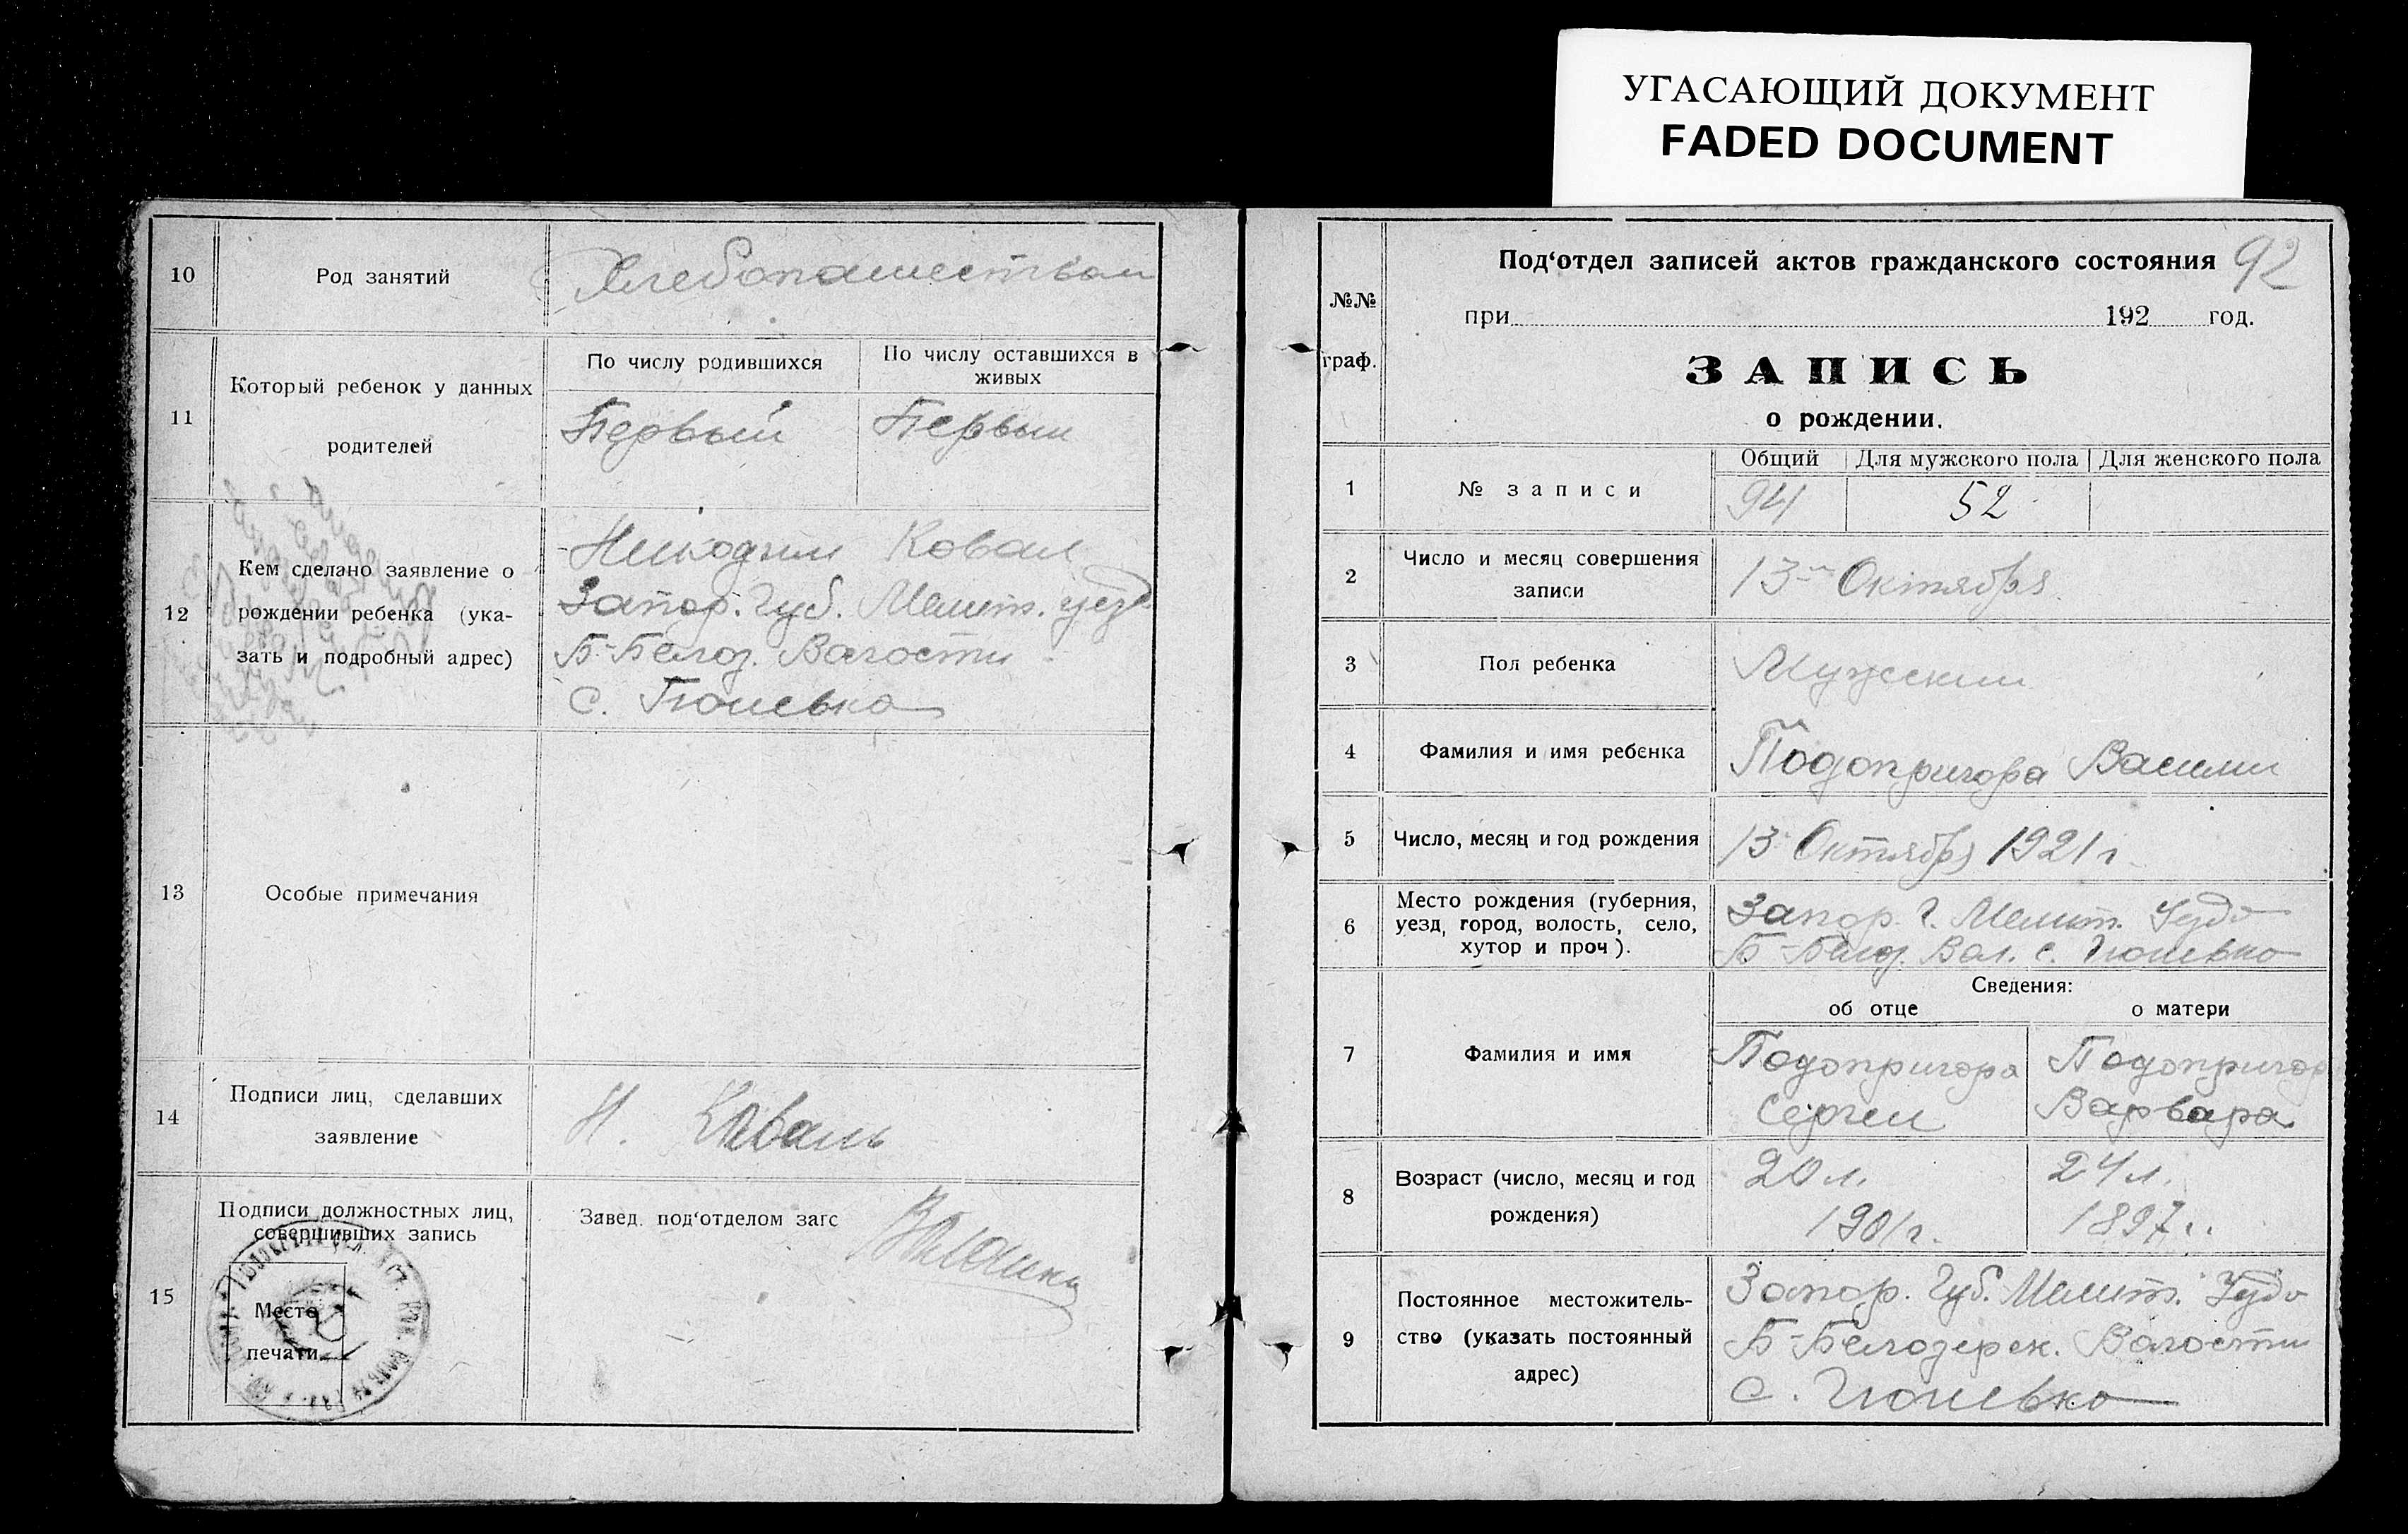 УГАСАЮЩИЙ ДОКУМЕНТ
FADED DOCUMENT
10
Род занятий
Хлебопашеством
11
Который ребенок у данных
родителей
По числу родившихся
По числу оставшихся в
живых
Первый
Первый
12
Кем сделано заявление о
рождении ребенка (ука-
зать и подробный адрес)
Никодим Ковал
Запор. Губ. Мелит. уезд
Б-Белоз. Волости
с.
13
Особые примечания
14
Подписи лиц, сделавших
заявление
Н. Коваль
15
Подписи должностных лиц,
совершивших запись
Место
печати
Завед. под‘отделом загс
№№
граф.
Под‘отдел записей актов гражданского состояния
92
при 192 год.
ЗАПИСЬ
о рождении.
1
№ записи
Общий Для мужского пола Для женского пола
94 52
2
Число и месяц совершения
записи
13 Октября
3
Пол ребенка
Мужский
4
Фамилия и имя ребенка
Подопригора Василий
5
Число, месяц и год рождения
13 Октября 1921 г
6
Место рождения (губерния,
уезд, город, волость, село,
хутор и проч).
Запор. Г. Мелит. Уезда
Б-Белоз. Вол. с.
Сведения:
об отце о матери
7
Фамилия и имя
Подопригора
Сергей
Подопригор
Варвара
8
Возраст (число, месяц и год
рождения)
20 л.
1901 г.
24 л.
1897 г.
9
Постоянное местожитель-
ство (указать постоянный
адрес)
Запор. Губ. Мелит. Уезда
Б-Белозерск. Волости
с.